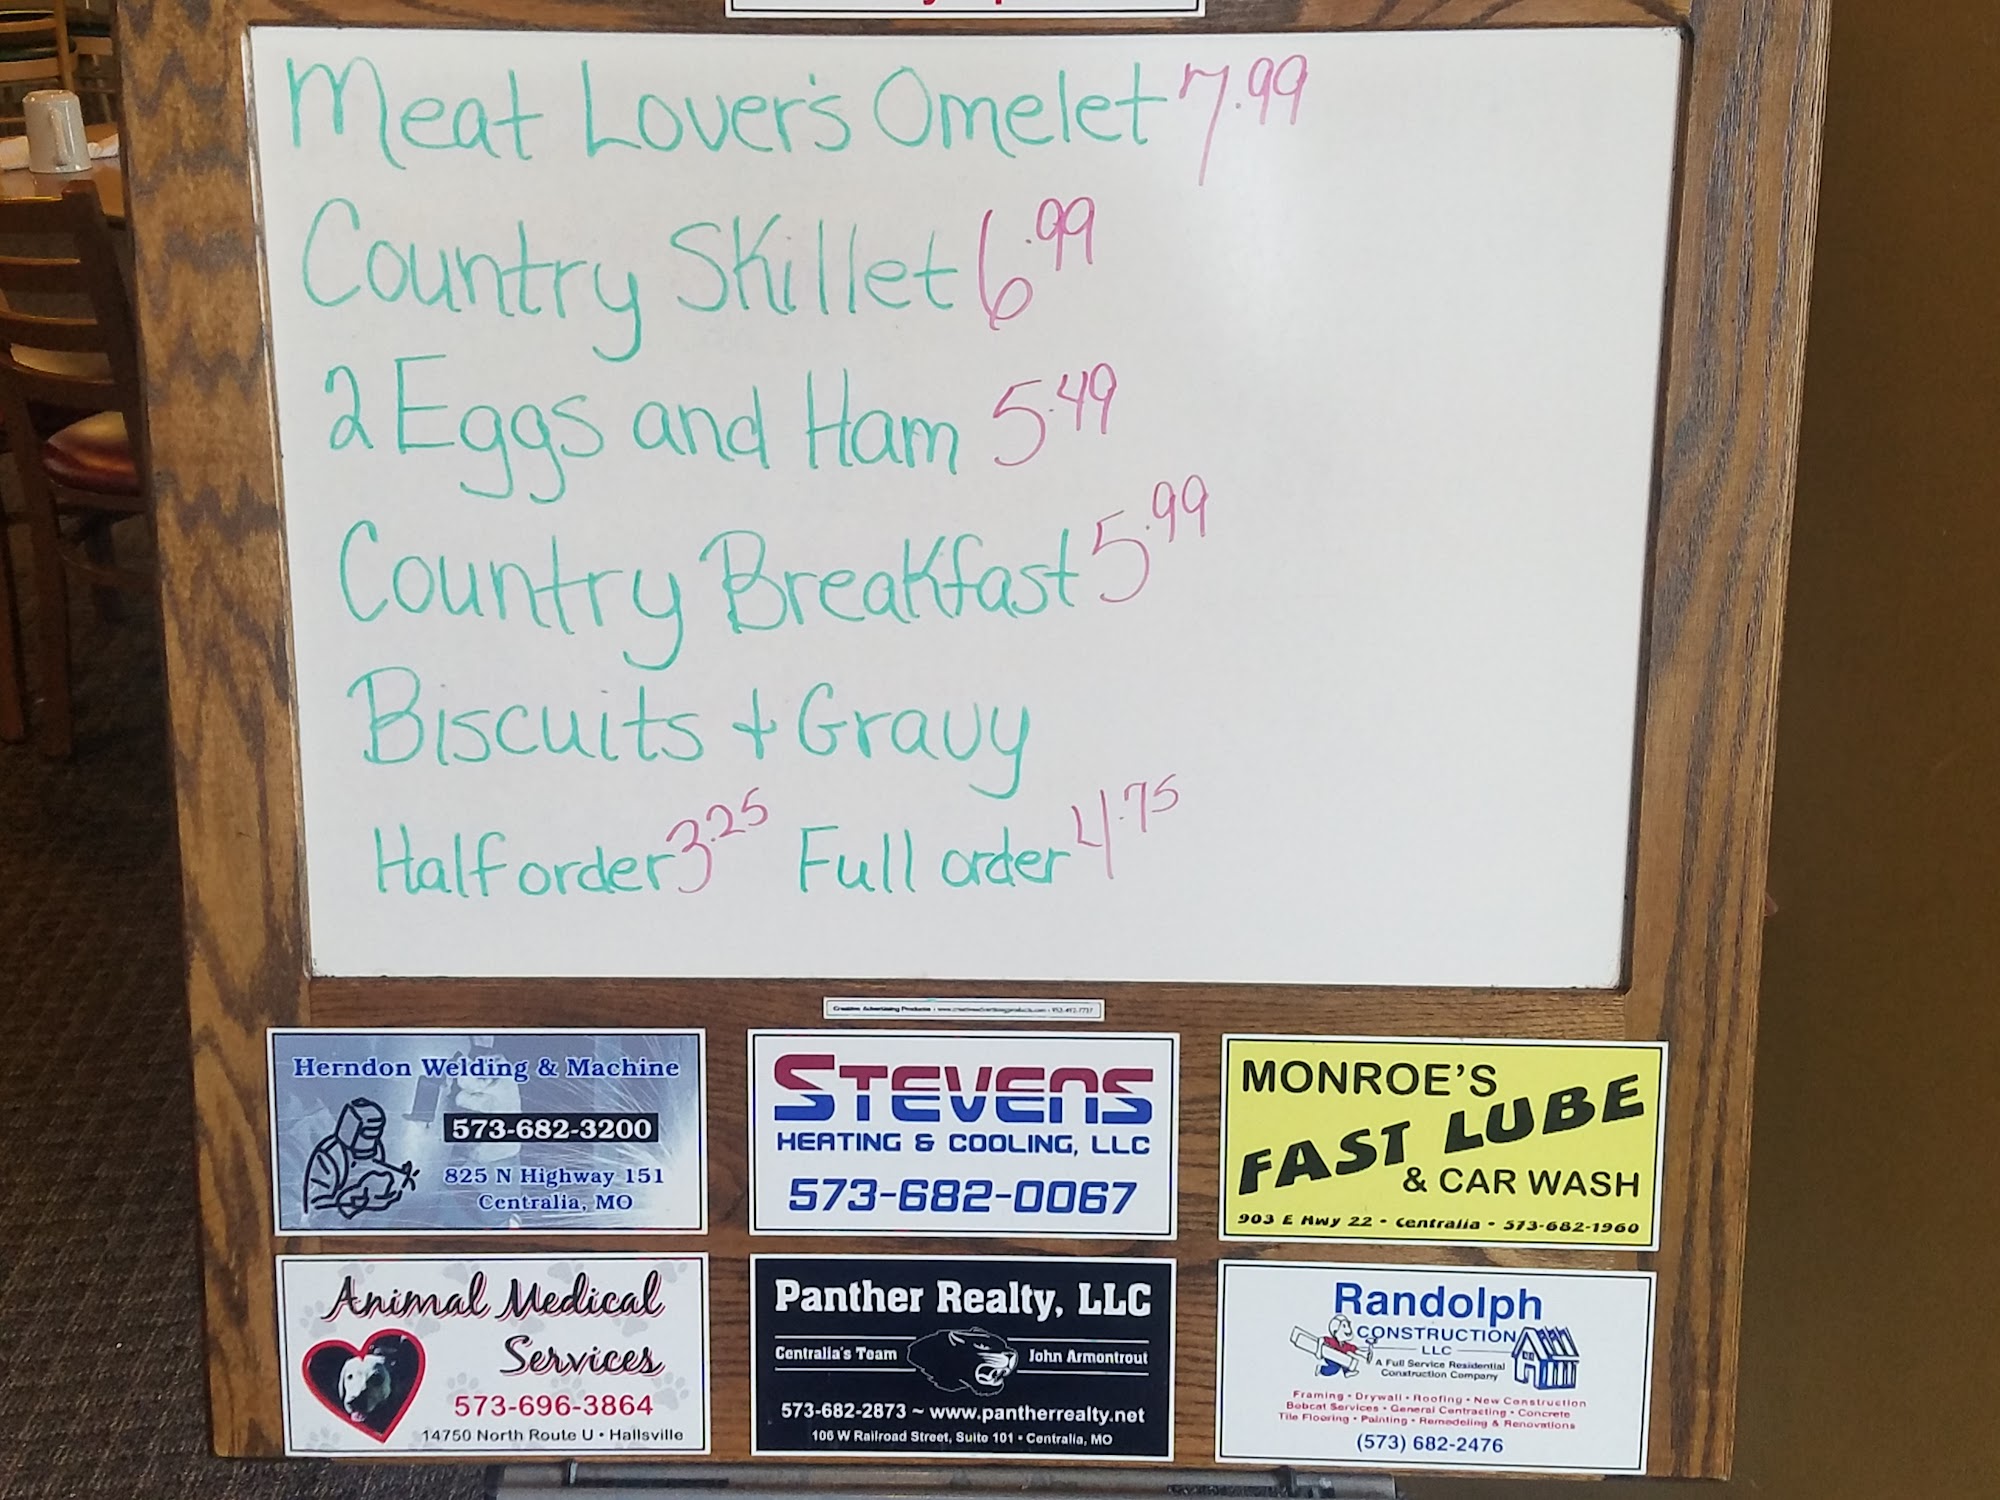 Meat Lover's Omelet 7.99
Country Skillet 6.99
2 Eggs and Ham 5.49
Country Breakfast 5.99
Biscuits + Gravy
Half order 3.25 Full order 4.75
Creative Advertising Products • www.creativeadvertisingproducts.com • 952-492-7727
Herndon Welding & Machine
573-682-3200
825 N Highway 151
Centralia, MO
STEVENS
HEATING & COOLING, LLC
573-682-0067
MONROE'S
FAST LUBE
& CAR WASH
903 E Hwy 22 • Centralia • 573-682-1960
Animal Medical
Services
573-696-3864
14750 North Route U • Hallsville
Panther Realty, LLC
Centralia's Team John Armontrout
573-682-2873 ~ www.pantherrealty.net
106 W Railroad Street, Suite 101 • Centralia, MO
Randolph
CONSTRUCTION
LLC
A Full Service Residential
Construction Company
Framing • Drywall • Roofing • New Construction
Bobcat Services • General Contracting • Concrete
Tile Flooring • Painting • Remodeling & Renovations
(573) 682-2476